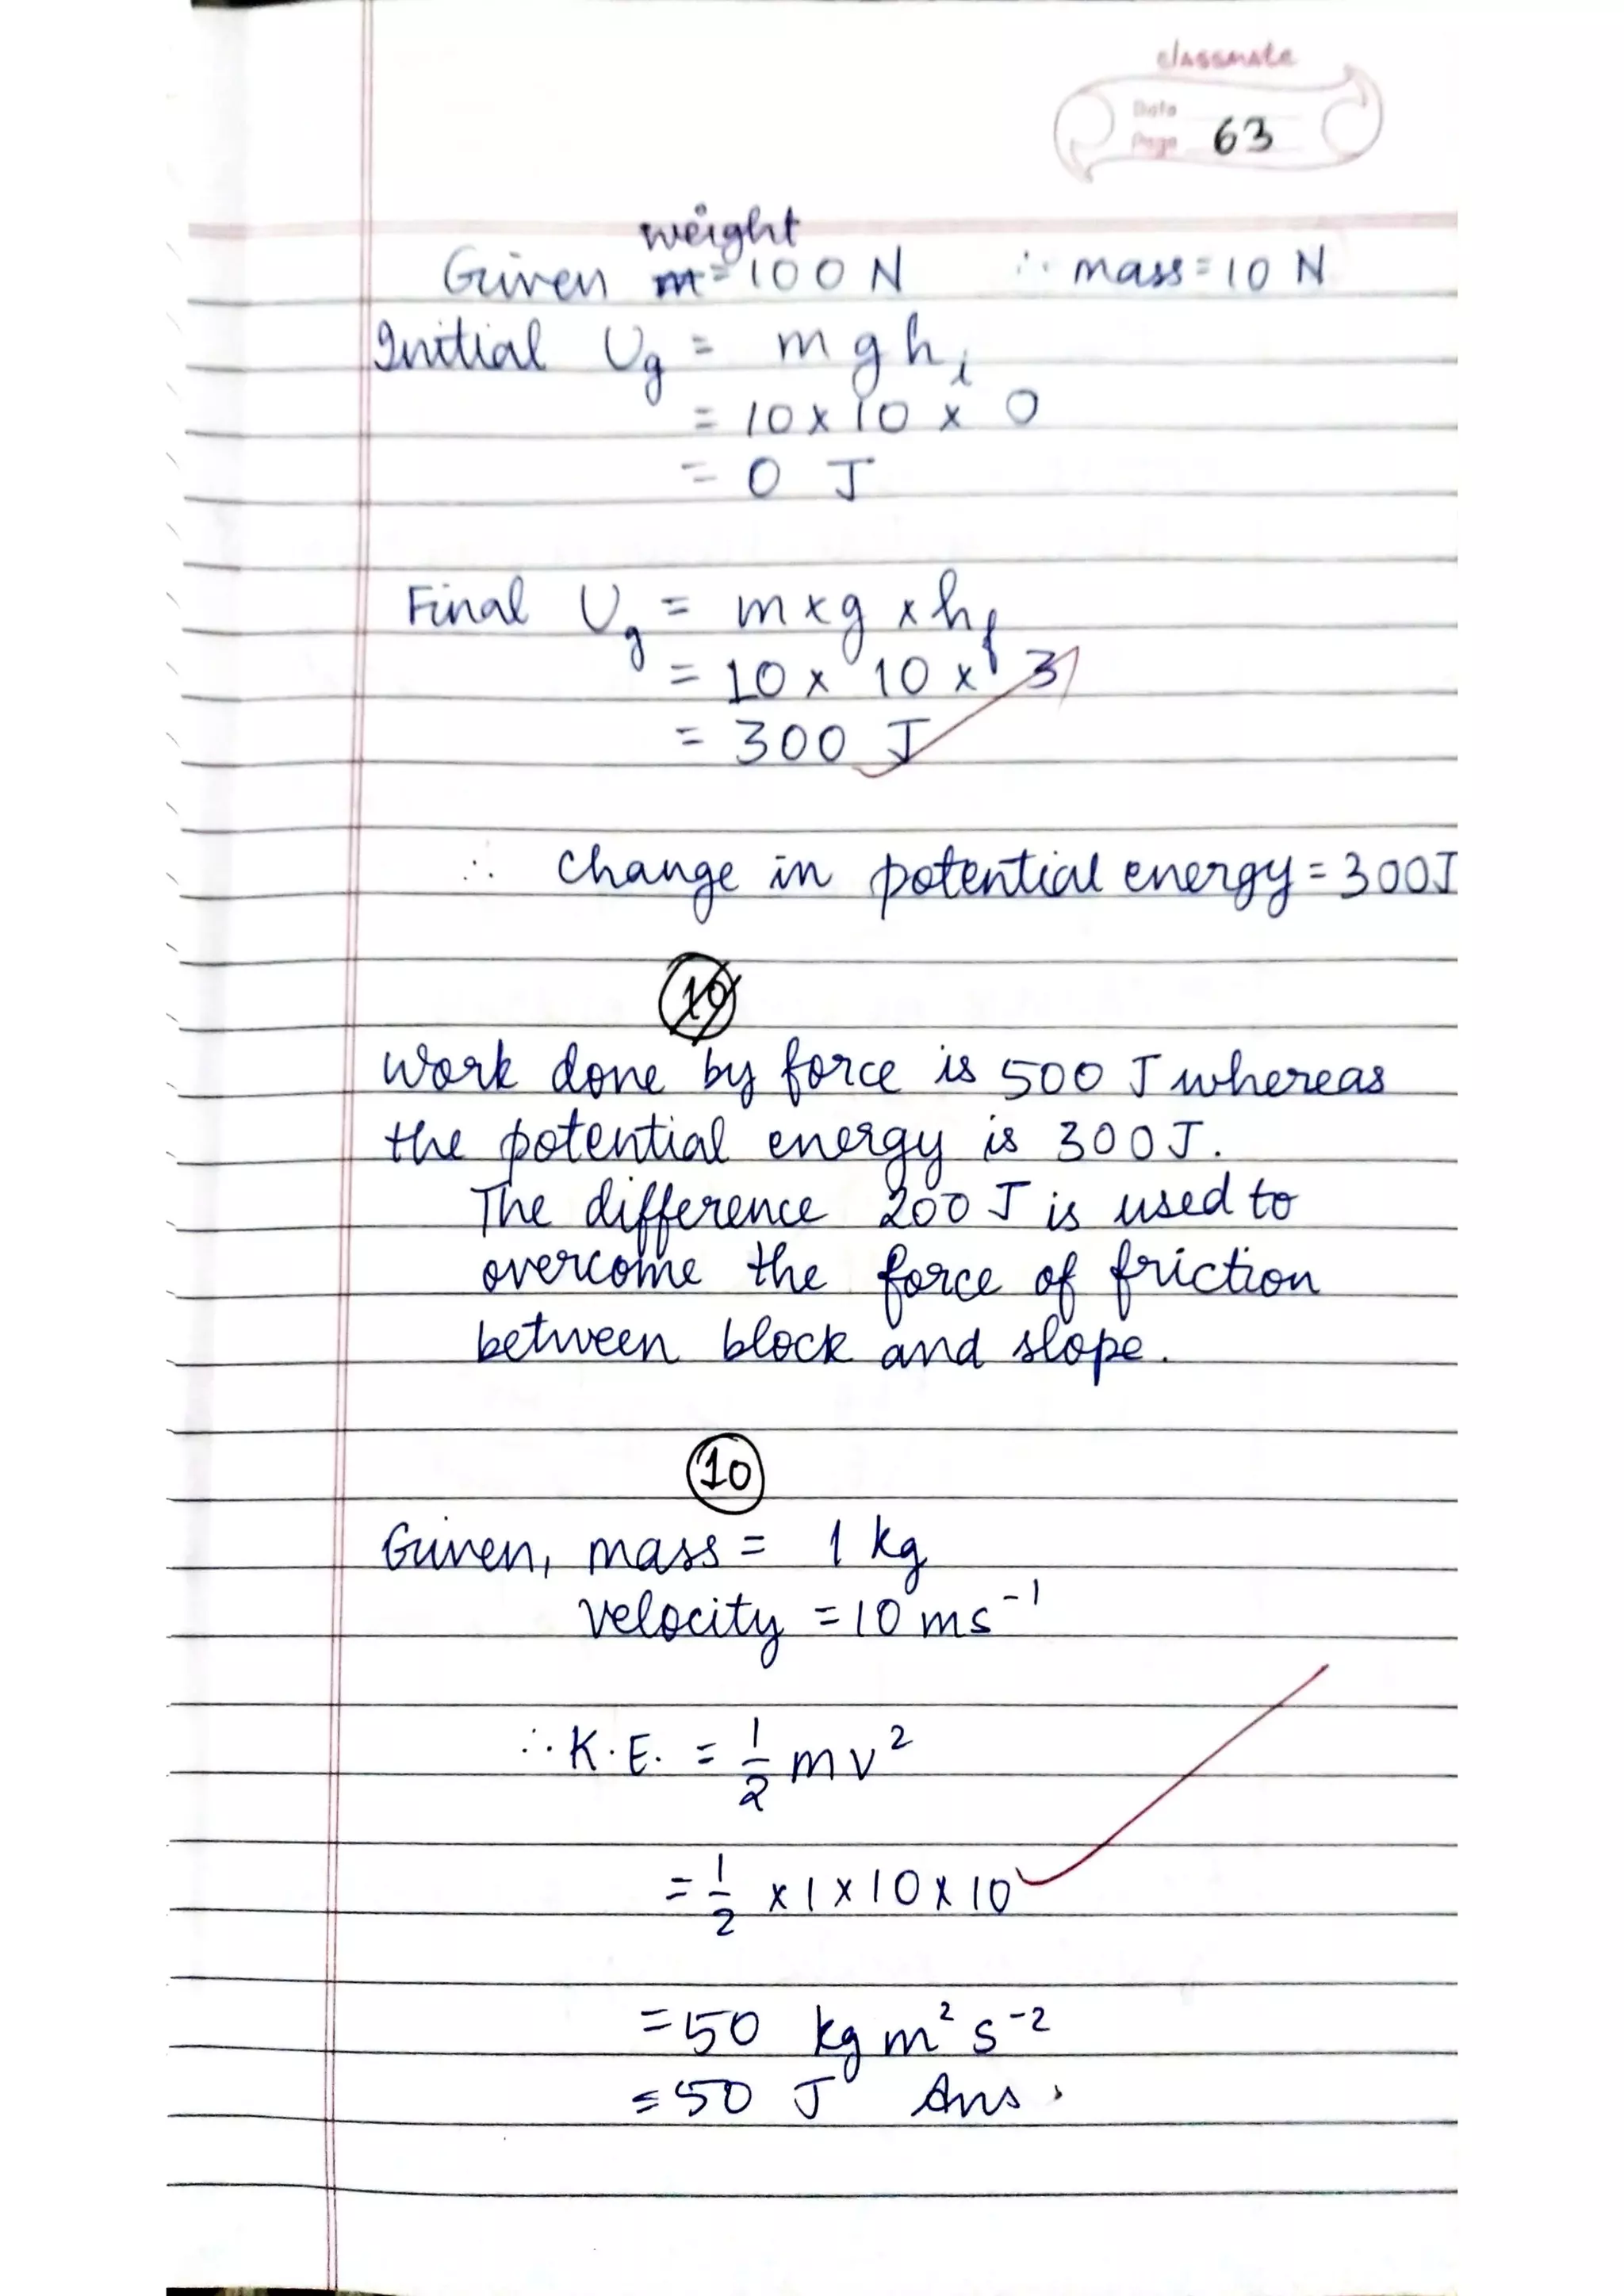 classmate
Date
Page 63
weight
Given m = 100 N ∴ mass = 10 N
Initial Ug = mghi
= 10 × 10 × 0
= 0 J
Final Ug = m × g × hf
= 10 × 10 × 3
= 300 J
∴ Change in potential energy = 300J
10
Work done by force is 500 J whereas
the potential energy is 300J.
The difference 200 J is used to
overcome the force of friction
between block and slope.
10
Given, mass = 1 kg
velocity = 10 ms⁻¹
∴ K.E. = 1/2 mv²
= 1/2 × 1 × 10 × 10
= 50 kg m² s⁻²
= 50 J Ans.